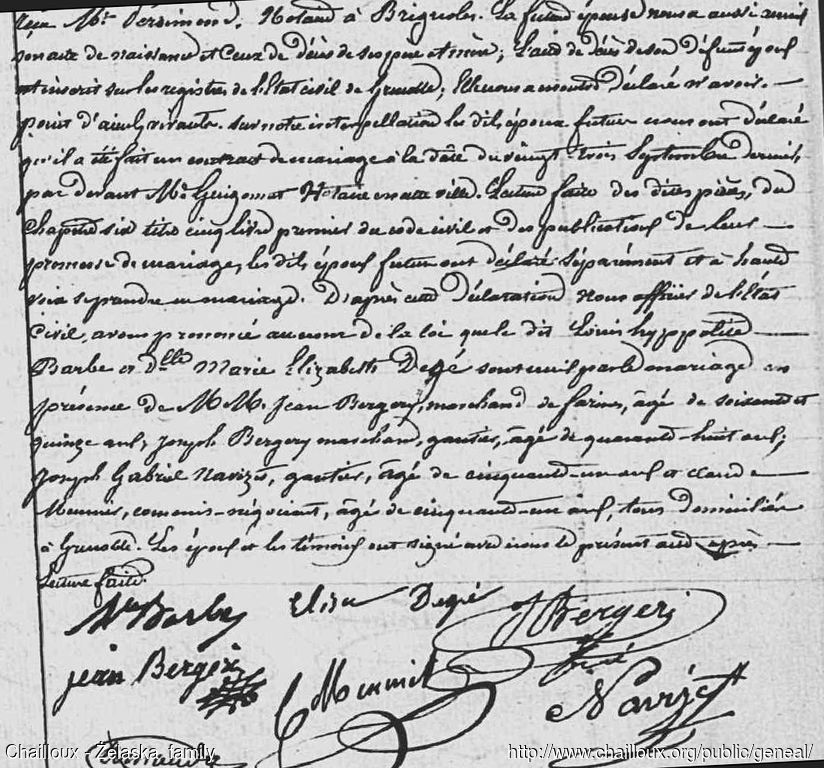 Mr. Persimond, Notaire à Brignoles. La future épouse nous a aussi
son acte de naissance et ceux de décès de ses père et mère; l'acte de décès de son défunt époux
est inscrit sur les registres de l'état civil de Grenoble; Elle nous a déclaré n'avoir
point d'aieuls vivants. Sur notre interpellation les dits époux futurs nous ont déclaré
qu'il a été fait un contrat de mariage à la date du vingt-trois Septembre dernier,
par devant Me. Notaire en cette ville. Lecture faite des dites pièces, du
chapitre six titre cinq livre premier du code civil et des publications de leurs
promesse de mariage, les dits époux futurs ont déclaré séparément et à haute
voix se prendre en mariage. D'après cette Déclaration Nous officier de l'état
Civil, avons prononcé au nom de la loi que le dit Louis hypolite
Barbe et dlle Marie Elizabeth Degé sont unis par le mariage en
présence de M.M. Jean Bergery, marchand de farine, âgé de soixante et
quinze ans; Joseph Bergery marchand, gantier, âgé de quarante-huit ans;
Joseph Gabriel Navizet, gantier, âgé de cinquante-un ans et claude
Meunier, commis-négociant, âgé de cinquante-un ans, tous domiciliés
à Grenoble. Les époux et les témoins ont signé avec nous le présent acte après
Lecture faite.
Barbe Elisa Degé J Bergeri
jean Bergeri Meunier Navizet
Chailloux - Zelaska family http://www.chailloux.org/public/geneal/